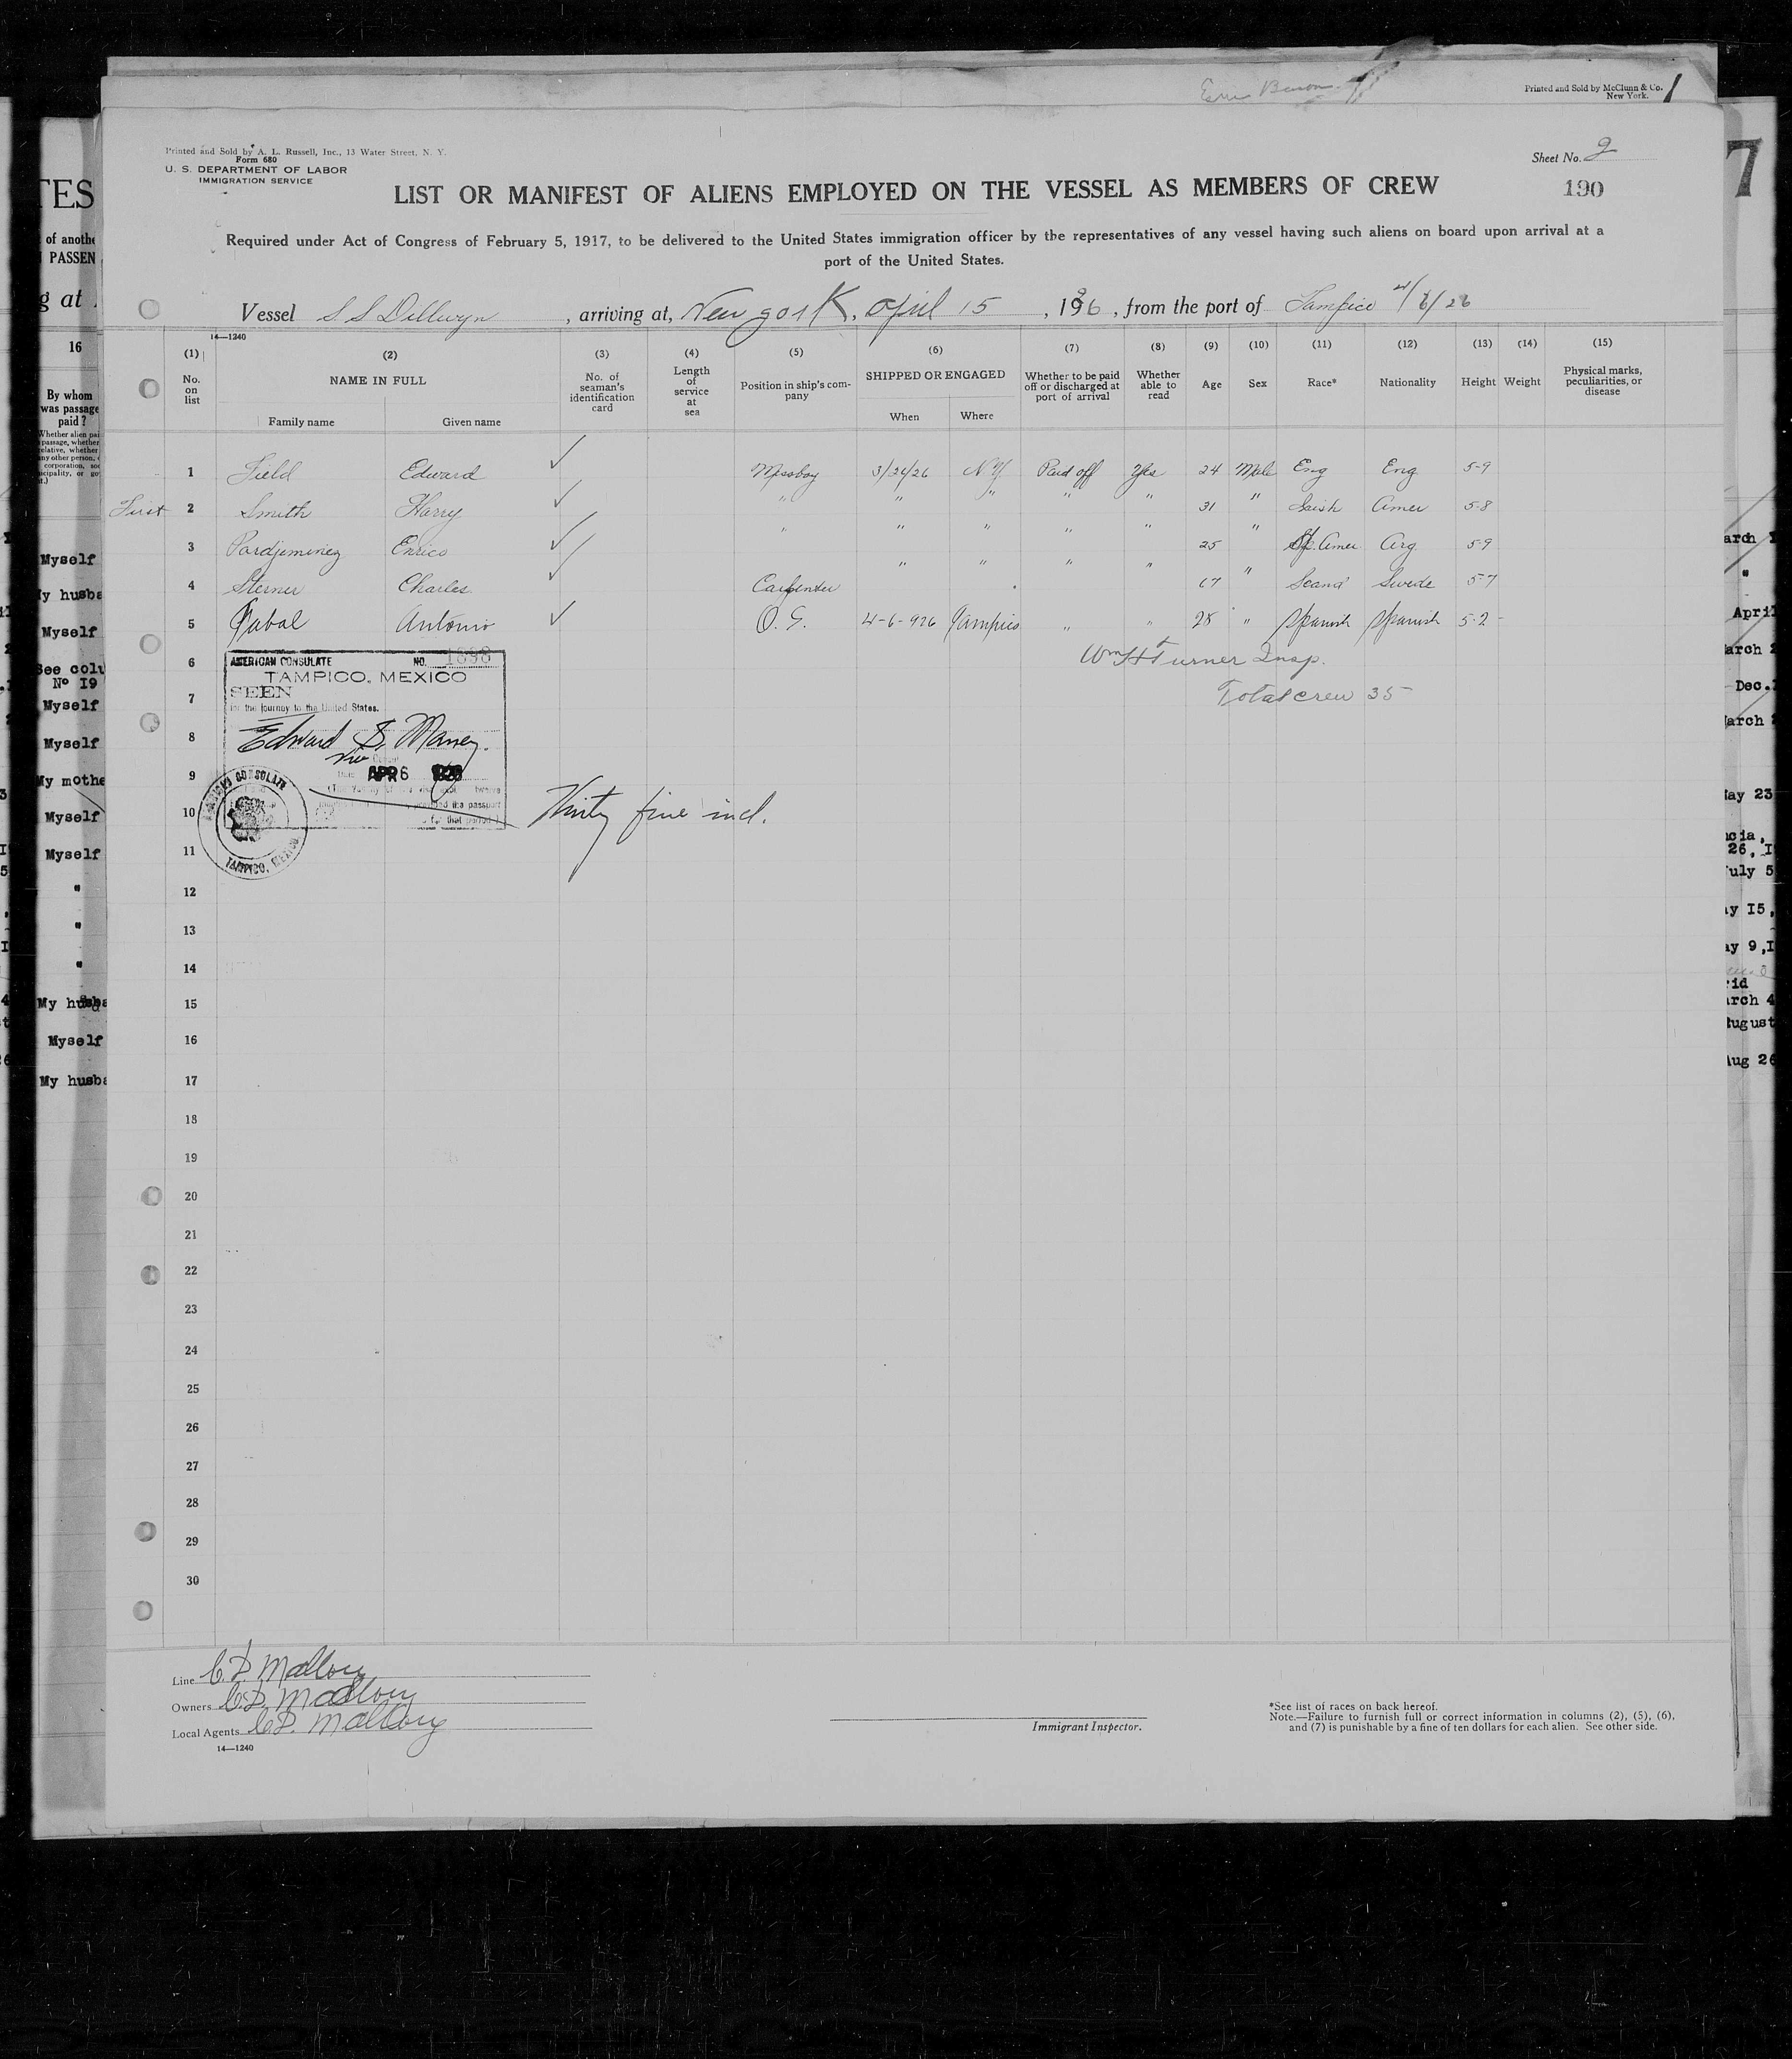 Printed and Sold by McClunn & Co.
New York.
1
Printed and Sold by A. L. Russell, Inc., 13 Water Street, N. Y.
Form 680
U. S. DEPARTMENT OF LABOR
IMMIGRATION SERVICE
Sheet No. 2
190
LIST OR MANIFEST OF ALIENS EMPLOYED ON THE VESSEL AS MEMBERS OF CREW
Required under Act of Congress of February 5, 1917, to be delivered to the United States immigration officer by the representatives of any vessel having such aliens on board upon arrival at a
port of the United States.
Vessel S S Dillwyn, arriving at, New york, April 15, 1926, from the port of Tampico 4/6/26
14—1240
(1) (2) (3) (4) (5) (6) (7) (8) (9) (10) (11) (12) (13) (14) (15)
No. on list NAME IN FULL Family name Given name No. of seaman's identification card Length of service at sea Position in ship's company SHIPPED OR ENGAGED When Where Whether to be paid off or discharged at port of arrival Whether able to read Age Sex Race* Nationality Height Weight Physical marks, peculiarities, or disease
1 Field Edward ✓ Messboy 3/24/26 N.Y. Paid off Yes 24 Male Eng Eng 5-9
First 2 Smith Harry ✓ " " " " " 31 " Irish Amer 5-8
3 Enrico ✓ " " " " " 25 " Sp. Amer Arg 5-9
4 Sterner Charles ✓ Carpenter " " " " 67 " Scand Swede 5-7
5 Antonio ✓ O. S. 4-6-926 Tampico " " 28 " Spanish Spanish 5-2
6 Wm H Turner Insp.
7 Total crew 35
8
9
10
11
12
13
14
15
16
17
18
19
20
21
22
23
24
25
26
27
28
29
30
AMERICAN CONSULATE NO. 1898
TAMPICO, MEXICO
SEEN
for the journey to the United States.
Edward S. Maney.
Vice Consul
Date APR 6 1926
AMERICAN CONSULATE
TAMPICO, MEXICO
Thirty five incl.
Line C. D. Mallory
Owners C. D. Mallory
Local Agents C. D. Mallory
14—1240
Immigrant Inspector.
*See list of races on back hereof.
Note.—Failure to furnish full or correct information in columns (2), (5), (6),
and (7) is punishable by a fine of ten dollars for each alien. See other side.
16
By whom
was passage
paid?
Myself
Myself
Nº 19
Myself
Myself
Myself
Myself
"
"
"
Myself
7
April
Dec.
July 5
August
Aug 26